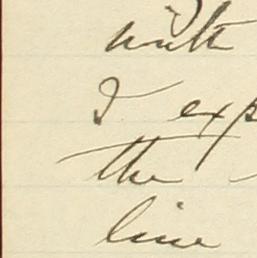 with
I exp
the
line